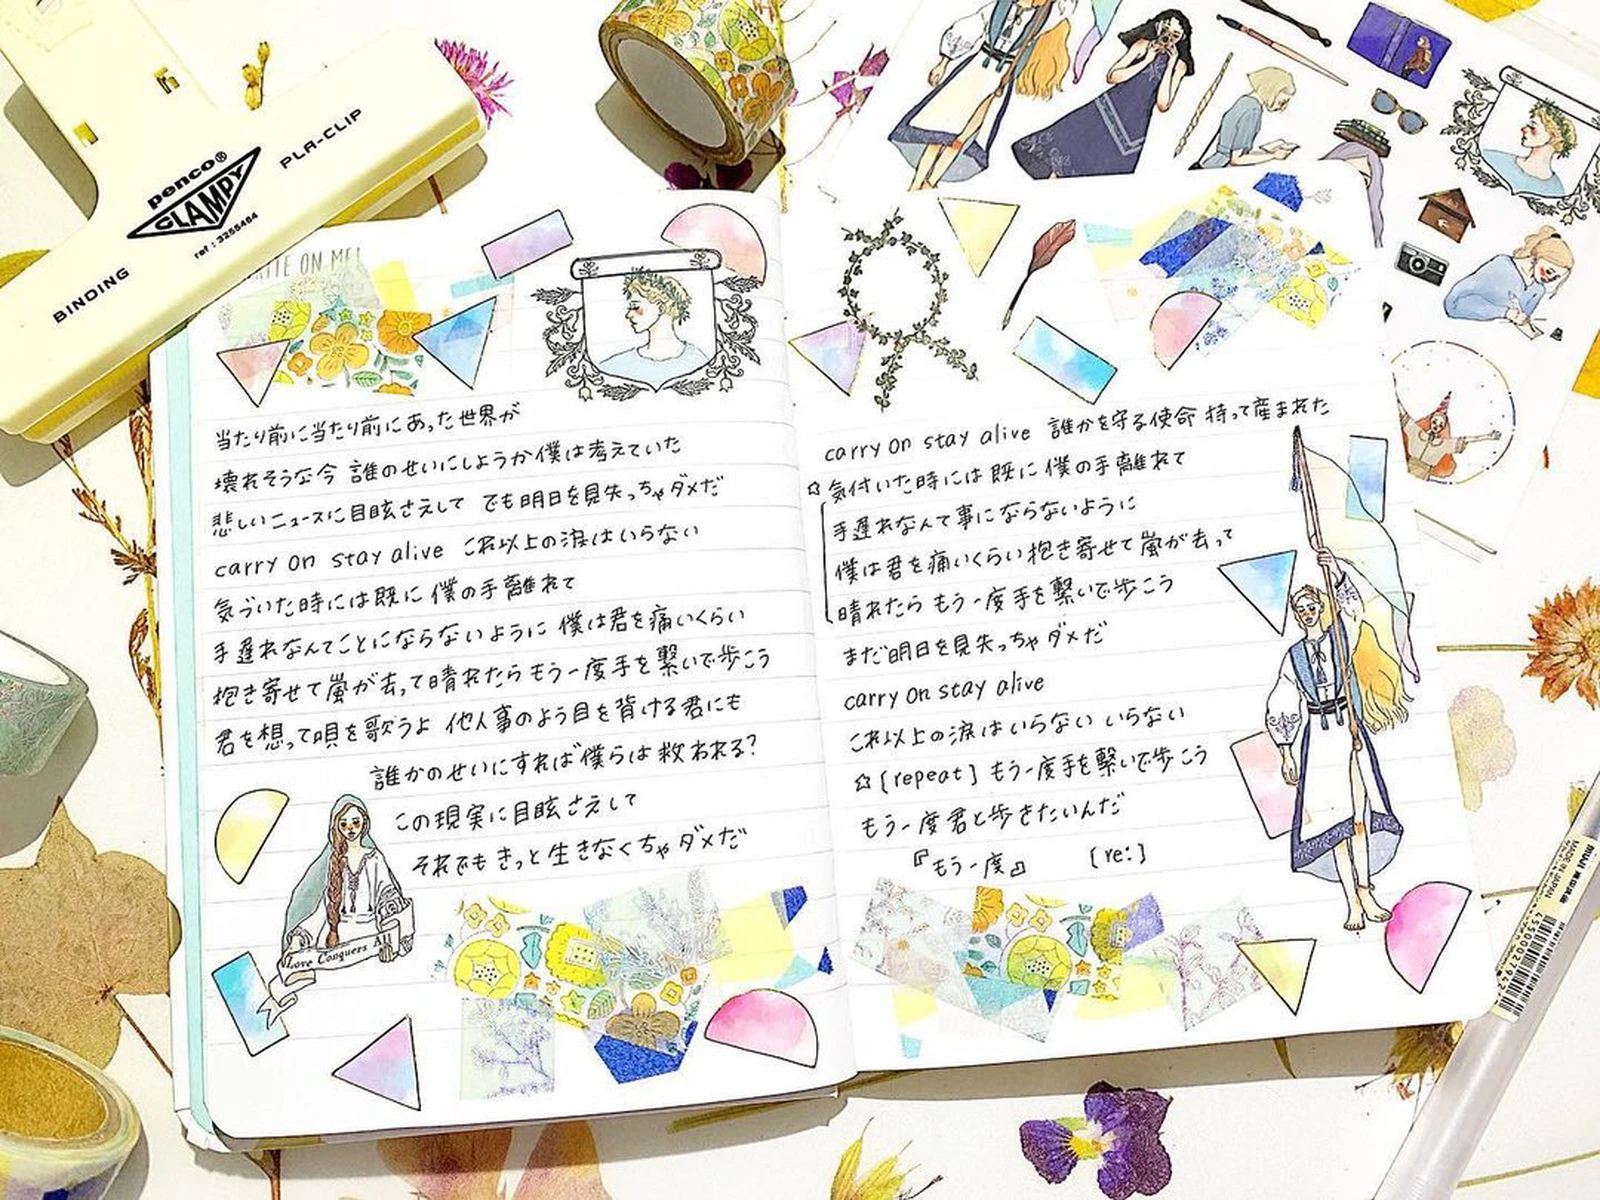 penco®
CLAMPY
PLA-CLIP
ref : 3255484
BINDING
ON ME!
当たり前に当たり前にあった世界が
壊れそうな今 誰のせいにしようか僕は考えていた
悲しいニュースに目眩さえして でも明日を見失っちゃダメだ
carry on stay alive これ以上の涙はいらない
気づいた時には既に 僕の手離れて
手遅れなんてことにならないように 僕は君を痛いくらい
抱き寄せて嵐が去って晴れたら もう一度手を繋いで歩こう
君を想って唄を歌うよ 他人事のよう目を背ける君にも
誰かのせいにすれば僕らは救われる?
この現実に目眩さえして
それでも きっと生きなくちゃダメだ
Love Conquers All
carry on stay alive 誰かを守る使命 持って産まれた
☆気付いた時には 既に 僕の手離れて
手遅れなんて事にならないように
僕は君を痛いくらい抱き寄せて 嵐が去って
晴れたら もう一度手を繋いで歩こう
まだ明日を見失っちゃダメだ
carry on stay alive
これ以上の涙はいらない いらない
☆[repeat] もう一度手を繋いで歩こう
もう一度君と歩きたいんだ
『もう一度』 [re:]
MUJI
MADE IN JAPAN